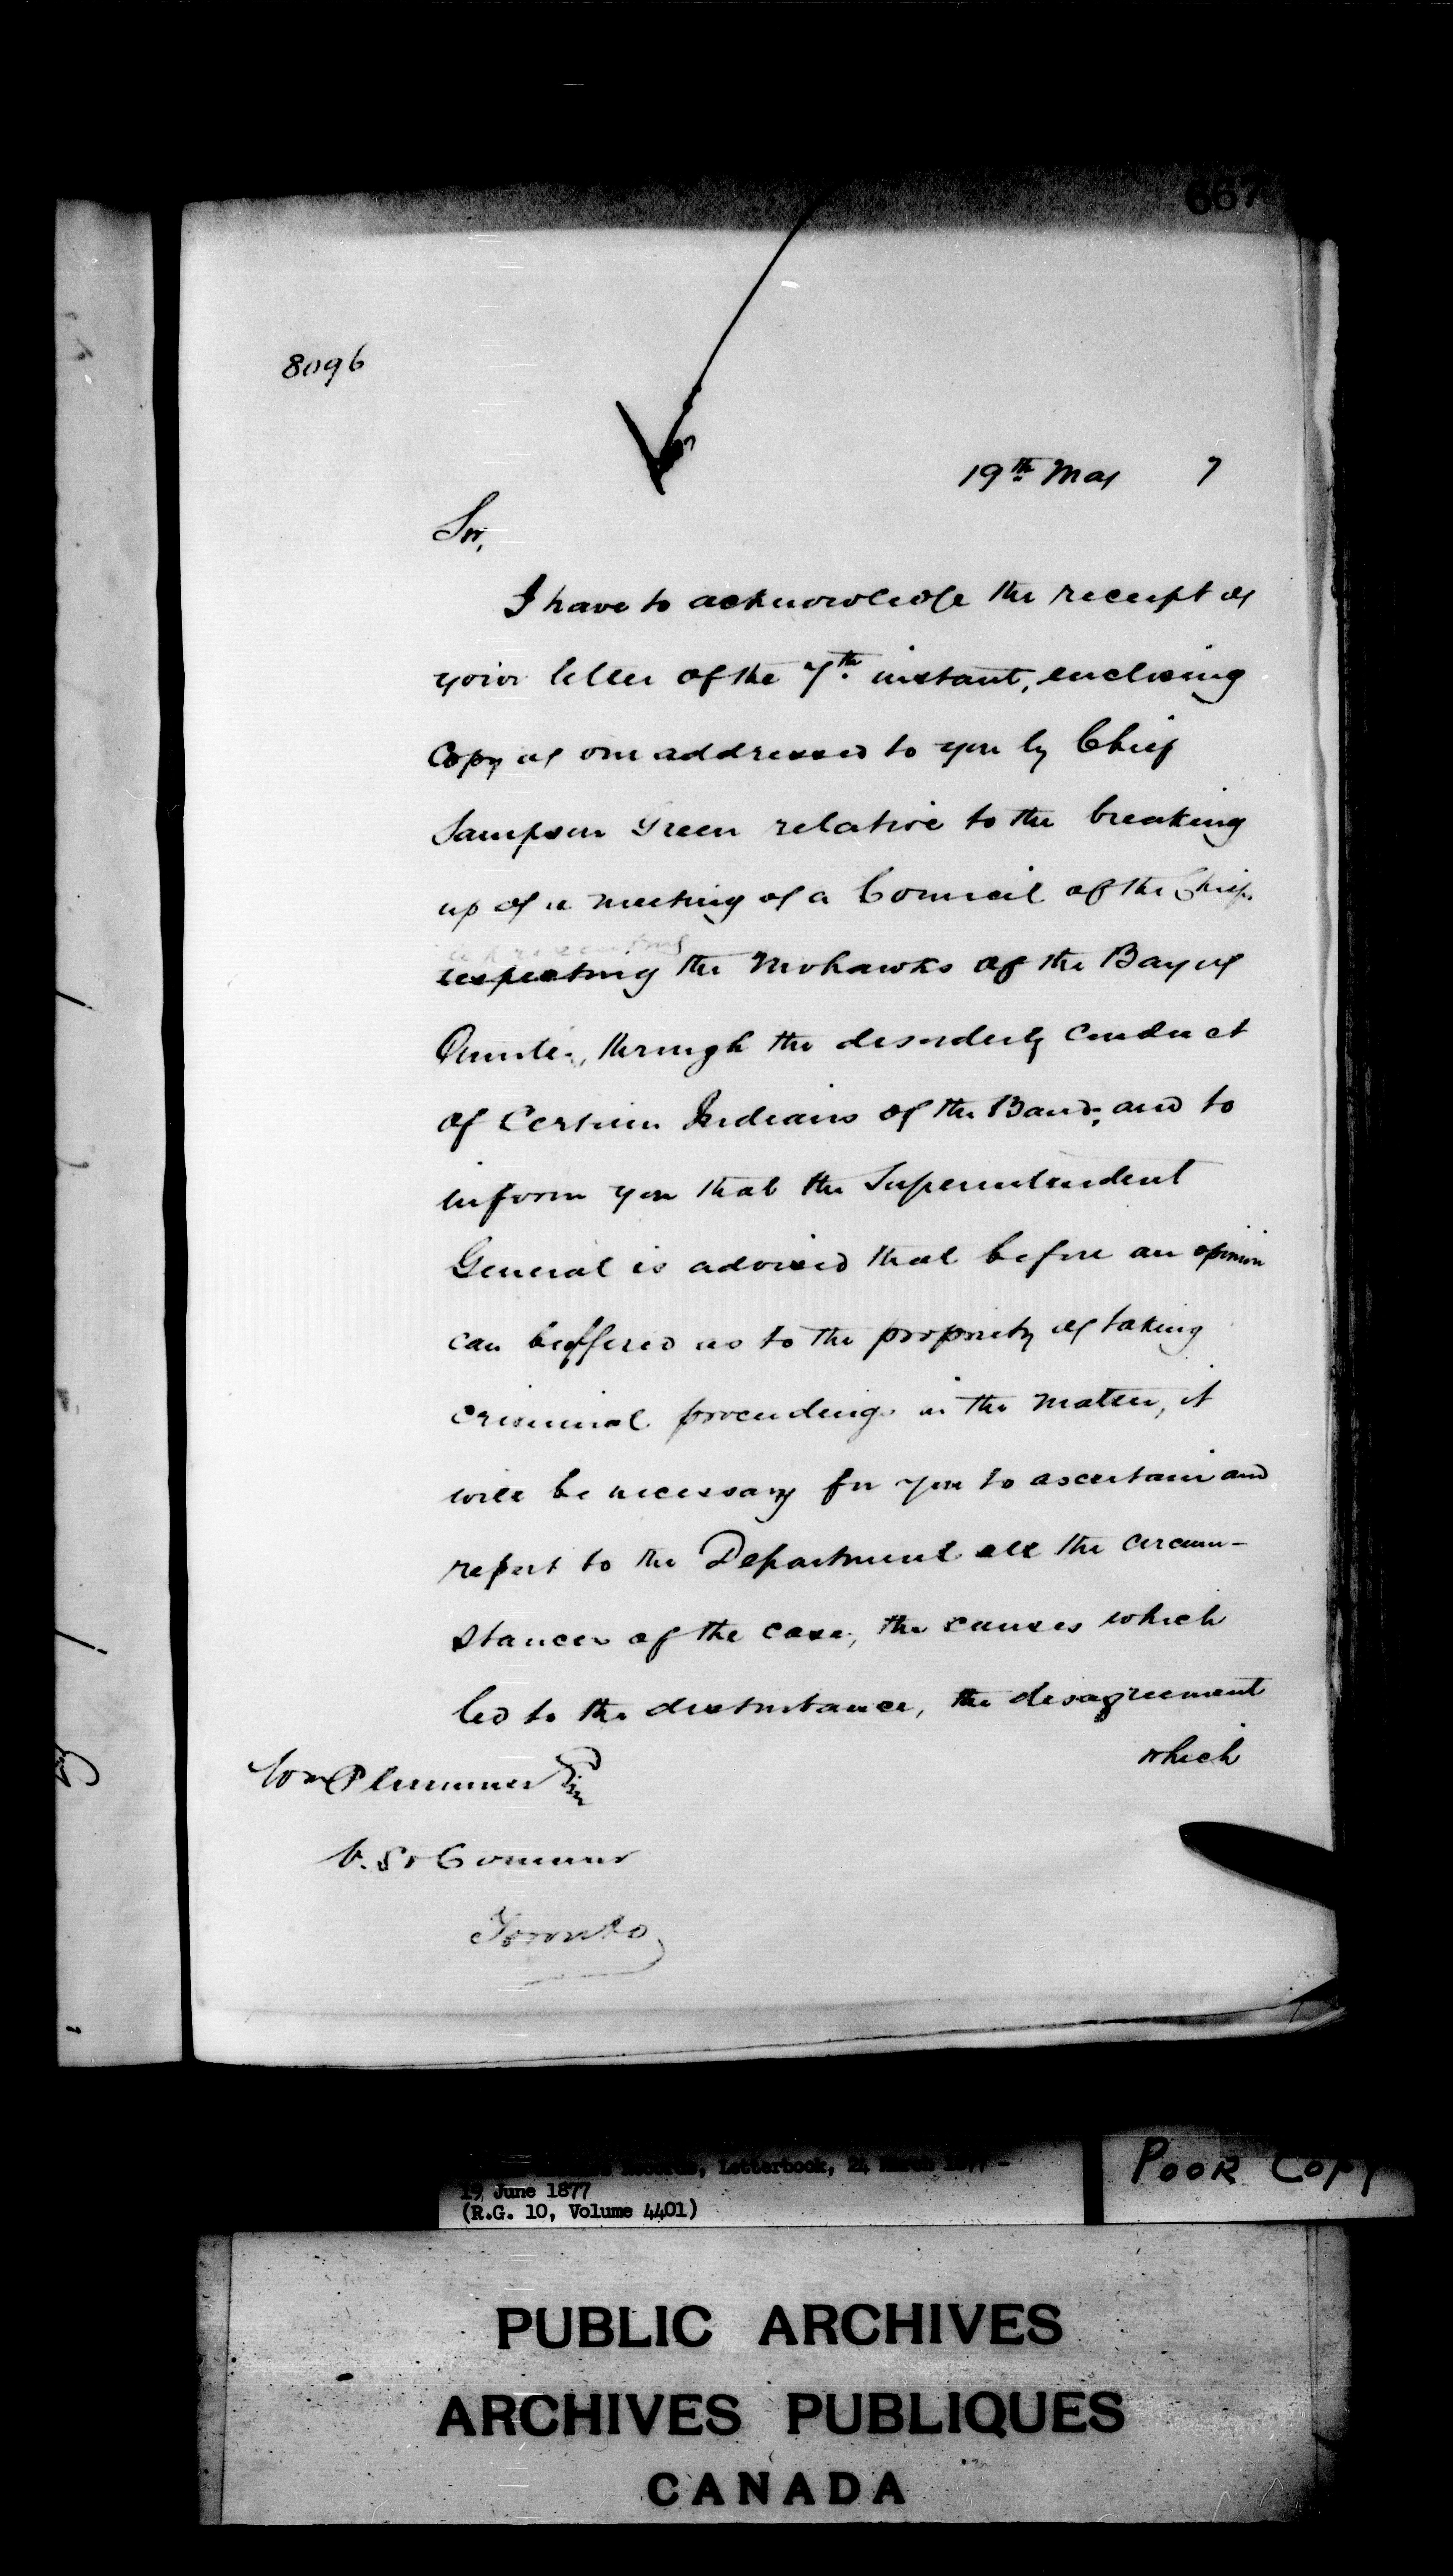 667
8096
19th May 7
Sir,
I have to acknowledge the receipt of
your letter of the 7th instant, enclosing
Copy of one addressed to you by Chief
Sampson Green relative to the breaking
up of a meeting of a Council of the Chiefs
representing
respecting the Mohawks of the Bay of
Quinte, through the disorderly conduct
of Certain Indians of the Band; and to
inform you that the Superintendent
General is advised that before an opinion
can be offered as to the propriety of taking
criminal proceedings in the matter, it
will be necessary for you to ascertain and
report to the Department all the circum-
stances of the case, the causes which
led to the disturbance, the disagreement
which
Wm Plummer Esq
V. S. & Commr
Toronto
Records, Letterbook, 24 March 1877 -
19 June 1877
(R.G. 10, Volume 4401)
POOR COPY
PUBLIC ARCHIVES
ARCHIVES PUBLIQUES
CANADA